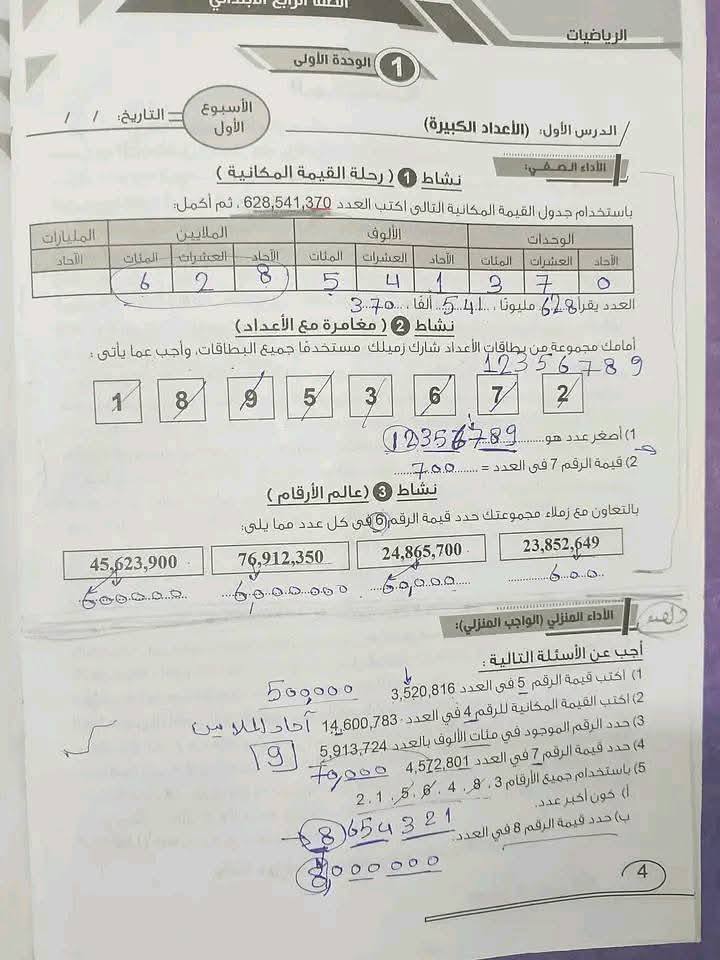 الصف الرابع الابتدائي
الرياضيات
1 الوحدة الأولى
الدرس الأول: (الأعداد الكبيرة)
الأسبوع الأول
التاريخ: / /
الأداء الصفي:
نشاط 1 ( رحلة القيمة المكانية )
باستخدام جدول القيمة المكانية التالى اكتب العدد 628,541,370 ، ثم أكمل:
الوحدات الألوف الملايين المليارات
الآحاد العشرات المئات الآحاد العشرات المئات الآحاد العشرات المئات الآحاد
0 7 3 1 4 5 8 2 6
العدد يقرأ 628 مليونًا، 541 ألفًا، 370
نشاط 2 ( مغامرة مع الأعداد)
أمامك مجموعة من بطاقات الأعداد شارك زميلك مستخدمًا جميع البطاقات، وأجب عما يأتى :
12356789
1 8 9 5 3 6 7 2
1) أصغر عدد هو 12356789
2) قيمة الرقم 7 فى العدد = 700
نشاط 3 (عالم الأرقام )
بالتعاون مع زملاء مجموعتك حدد قيمة الرقم 6 فى كل عدد مما يلى:
45,623,900 76,912,350 24,865,700 23,852,649
600000 6000000 60,000 600
الأداء المنزلي (الواجب المنزلي):
أجب عن الأسئلة التالية :
1) اكتب قيمة الرقم 5 فى العدد 3,520,816 500,000
2) اكتب القيمة المكانية للرقم 4 في العدد 14,600,783 آحاد الملايين
3) حدد الرقم الموجود في مئات الألوف بالعدد 5,913,724 9
4) حدد قيمة الرقم 7 في العدد 4,572,801 70,000
5) باستخدام جميع الأرقام 3 ، 8 ، 4 ، 6 ، 5 ، 1 ، 2
أ) كون أكبر عدد.
8654321
ب) حدد قيمة الرقم 8 في العدد.
8,000000
4